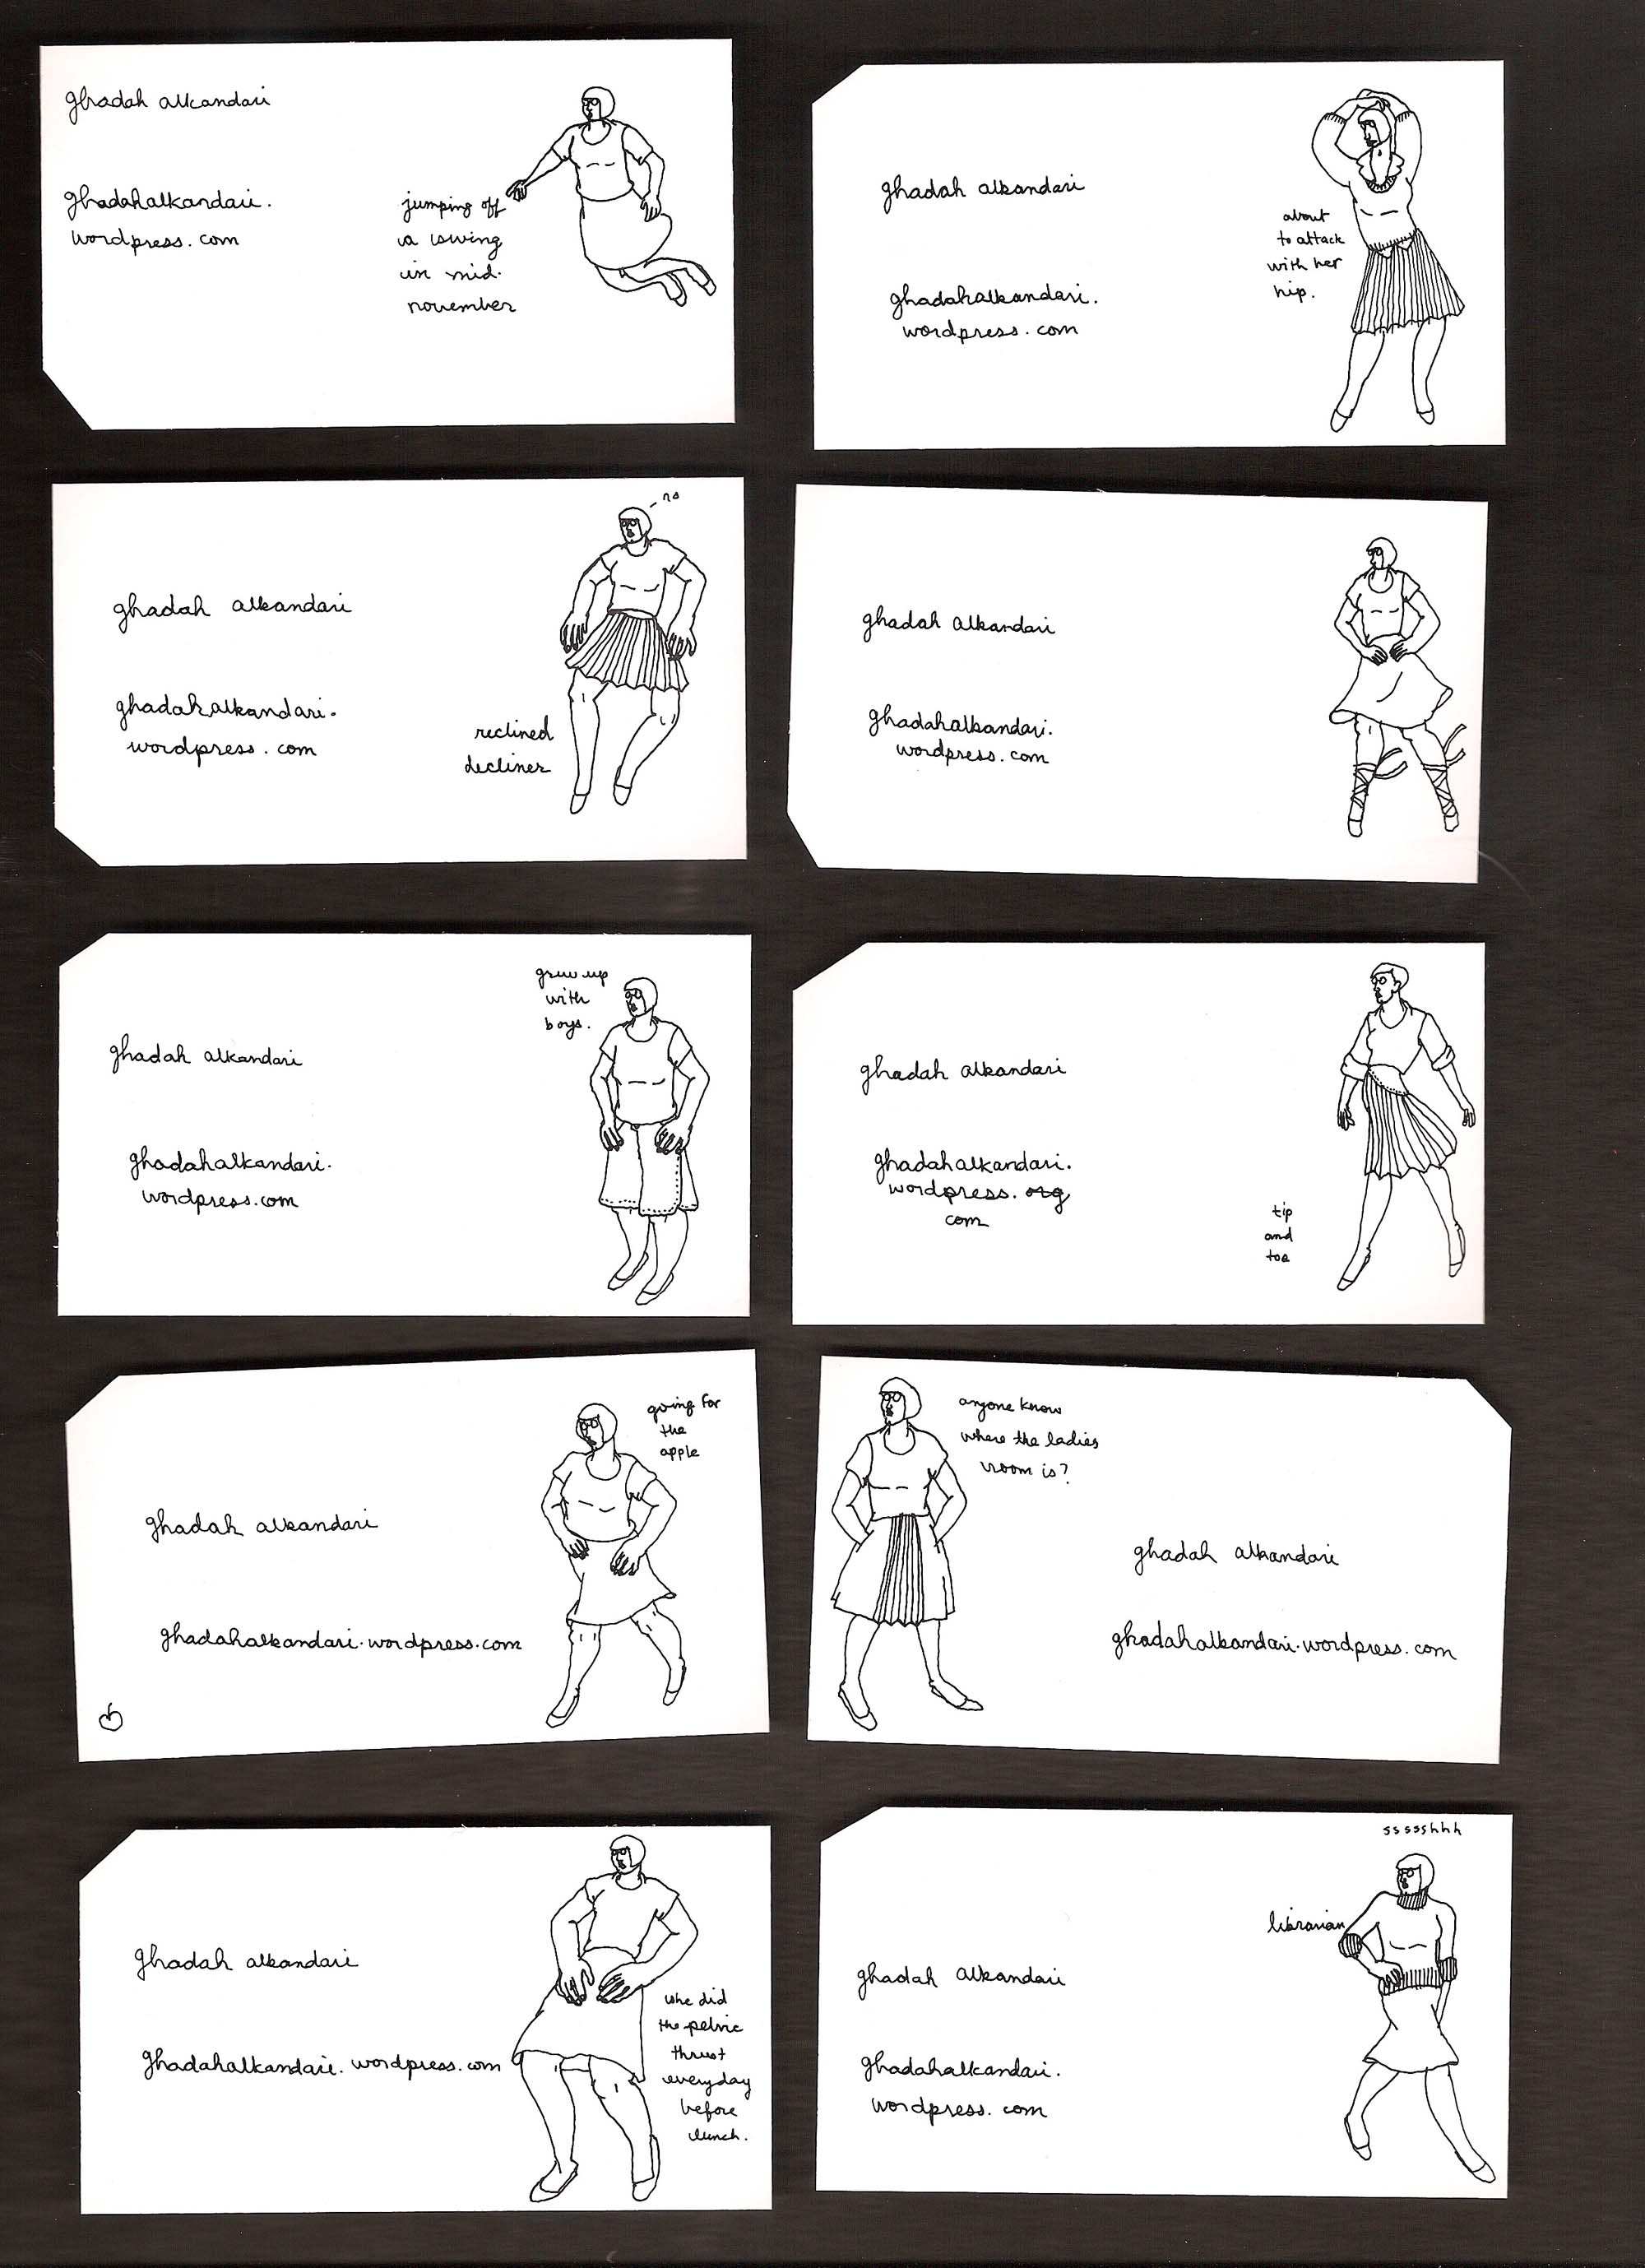 ghadah alkandari
ghadahalkandari.
wordpress.com
jumping off
a swing
in mid-
november
ghadah alkandari
ghadahalkandari.
wordpress.com
about
to attack
with her
hip.
ghadah alkandari
ghadahalkandari.
wordpress.com
no
reclined
decliner
ghadah alkandari
ghadahalkandari.
wordpress.com
ghadah alkandari
ghadahalkandari.
wordpress.com
grew up
with
boys.
ghadah alkandari
ghadahalkandari.
wordpress.org
com
tip
and
toe
ghadah alkandari
ghadahalkandari.wordpress.com
going for
the
apple
anyone know
where the ladies
room is?
ghadah alkandari
ghadahalkandari.wordpress.com
ghadah alkandari
ghadahalkandari.wordpress.com
she did
the pelvic
thrust
everyday
before
lunch.
sssshhh
librarian
ghadah alkandari
ghadahalkandari.
wordpress.com